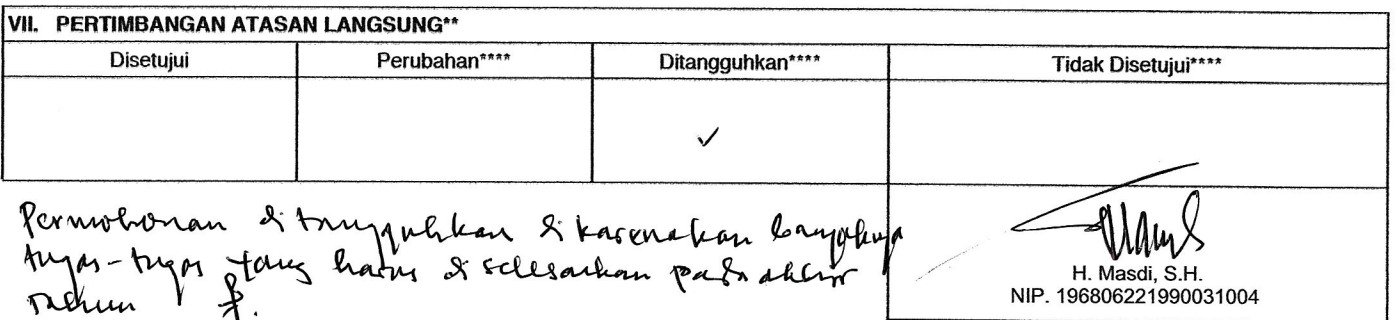 VII. PERTIMBANGAN ATASAN LANGSUNG**
Disetujui Perubahan**** Ditangguhkan**** Tidak Disetujui****
✓
Permohonan di tangguhkan di karenakan banyaknya
tugas-tugas yang harus di selesaikan pada akhir
tahun
H. Masdi, S.H.
NIP. 196806221990031004